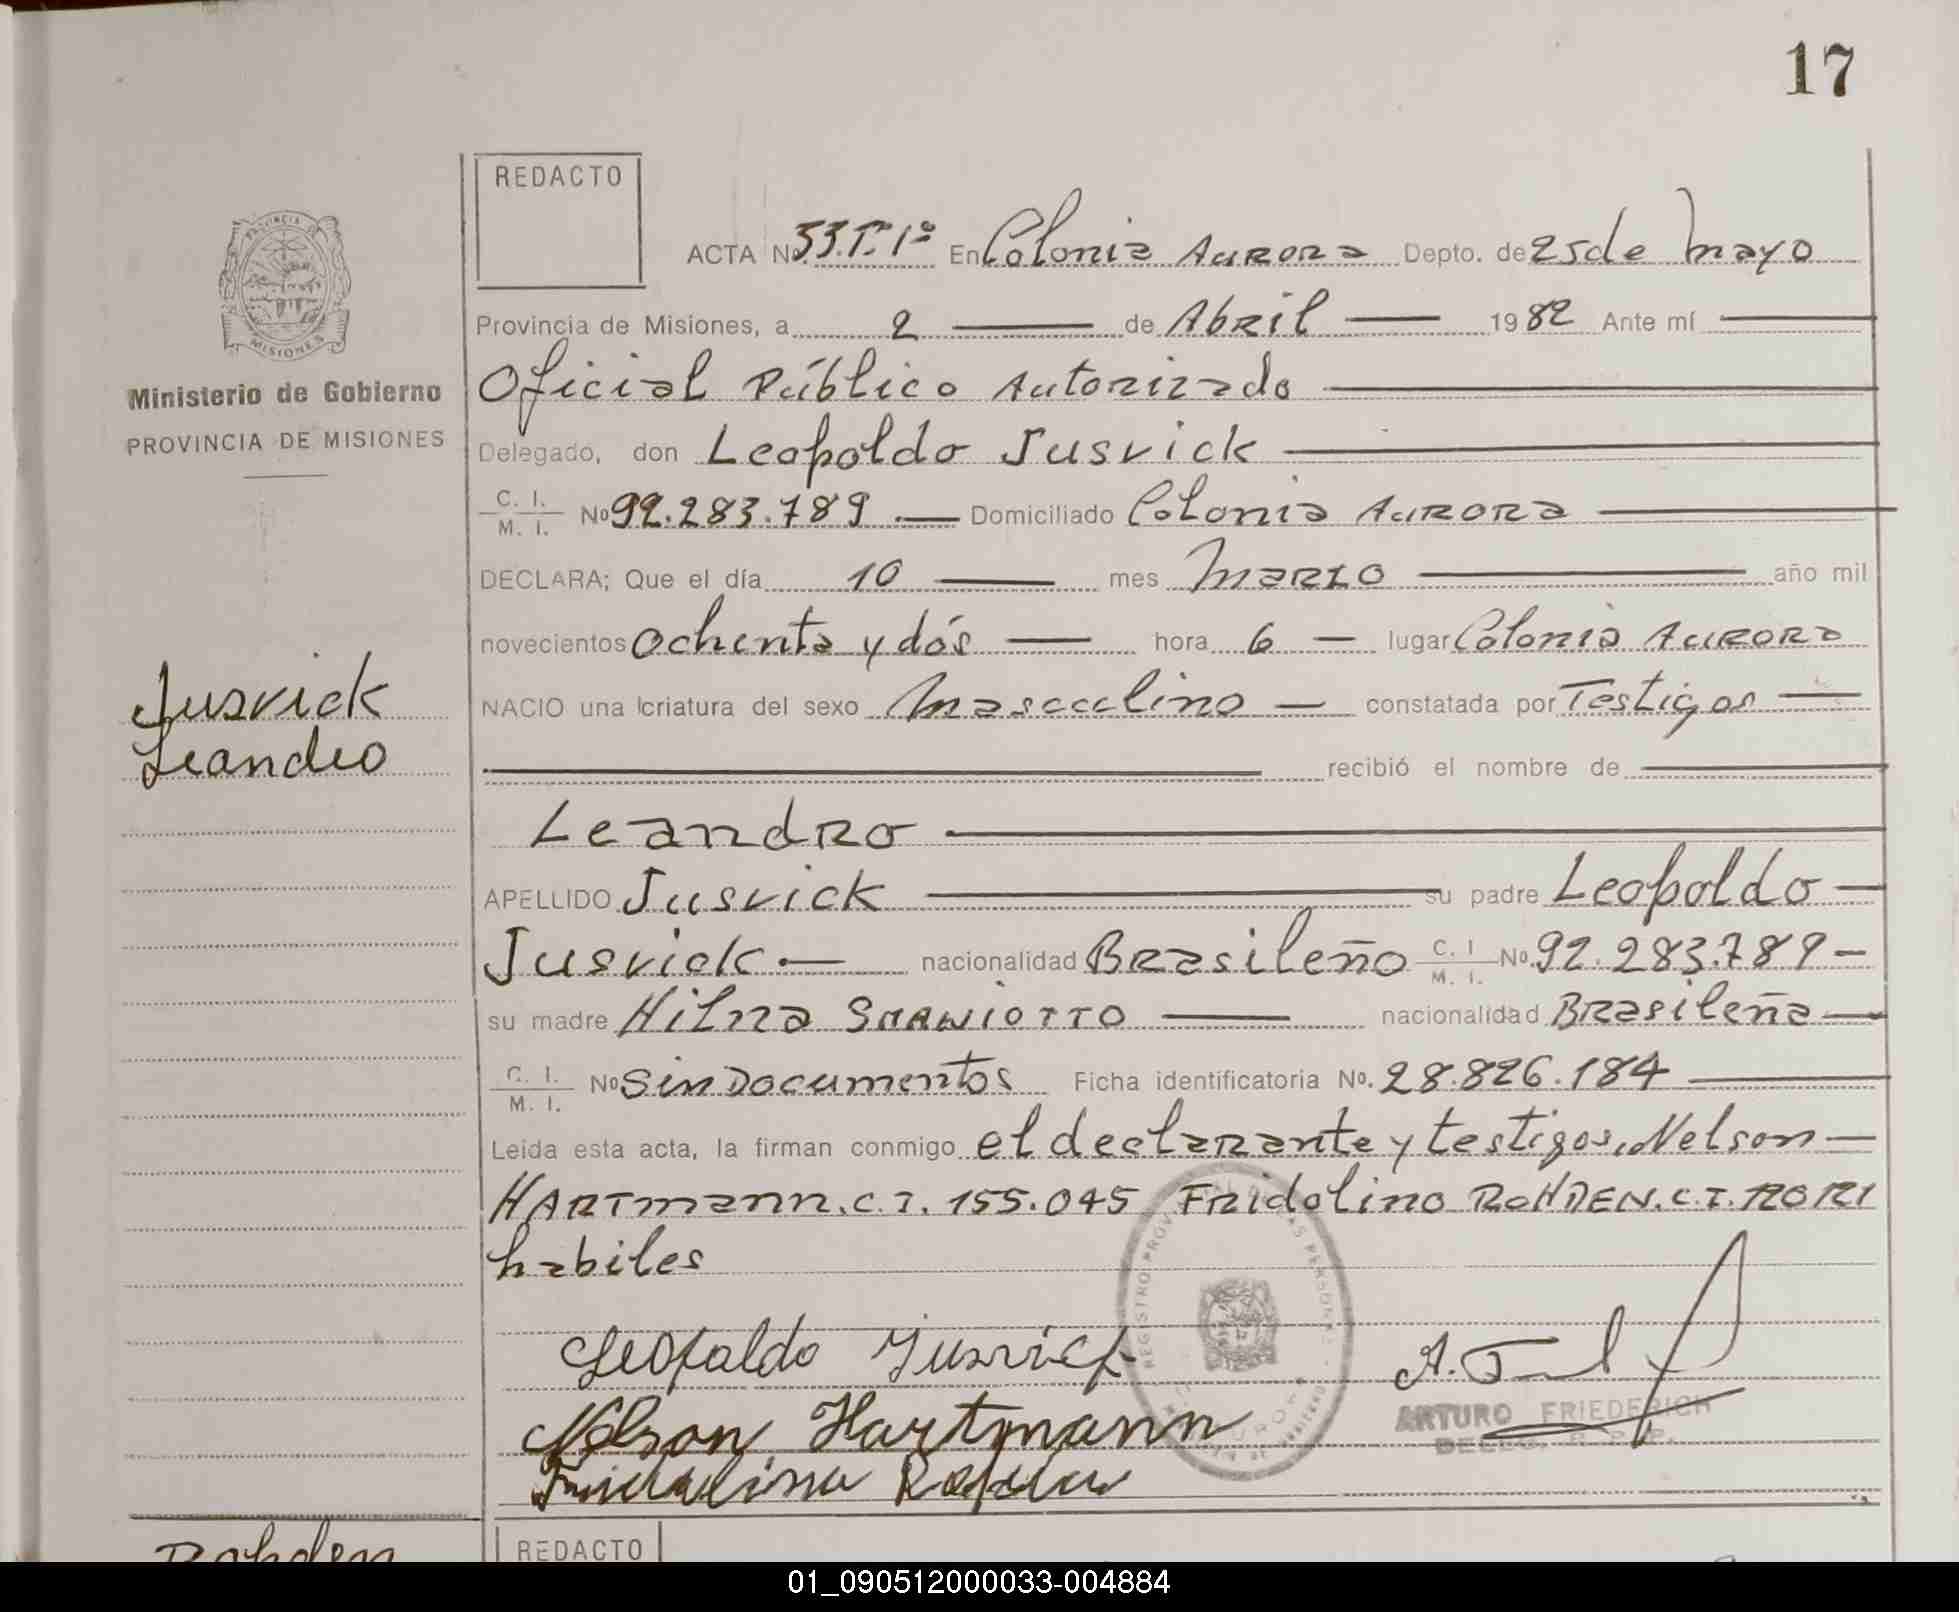 17
REDACTO
ACTA No 33.Tº 1º En Colonia Aurora Depto. de 25 de Mayo
Provincia de Misiones, a 2 de Abril 1982 Ante mí
Ministerio de Gobierno
PROVINCIA DE MISIONES
Oficial Público Autorizado
Delegado, don Leopoldo Jusvick
C. I. M. I. No 92.283.789 Domiciliado Colonia Aurora
DECLARA; Que el día 10 mes Marzo año mil
novecientos ochenta y dós hora 6 lugar Colonia Aurora
Jusvick
Leandro
NACIO una criatura del sexo Masculino constatada por Testigos
recibió el nombre de
Leandro
APELLIDO Jusvick su padre Leopoldo
Jusvick nacionalidad Brasileño C. I. M. I. No. 92.283.789
su madre Hilna Smaniotto nacionalidad Brasileña
C. I. M. I. No Sin Documentos Ficha identificatoria No. 28.826.184
Leída esta acta, la firman conmigo el declarante y testigos, Nelson
Hartmann. C.I. 155.045 Fridolino Rohden. C.I.
habiles
Leopoldo Jusvick
Nelson Hartmann
ARTURO FRIEDERICH
Rohden
REDACTO
01_090512000033-004884